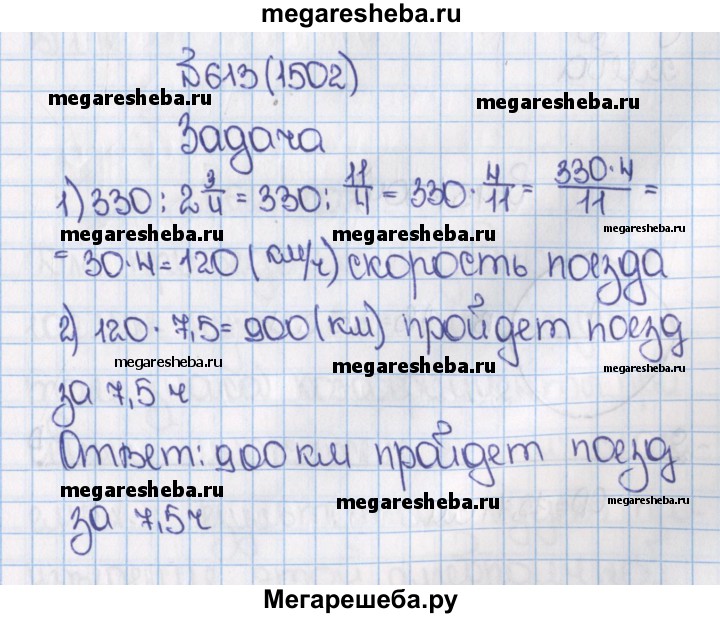 megaresheba.ru
№613(1502)
megaresheba.ru megaresheba.ru
Задача
1) 330 : 2 3/4 = 330 : 11/4 = 330 · 4/11 = 330·4/11 =
megaresheba.ru megaresheba.ru
= 30·4 = 120 (км/ч) скорость поезда
2) 120 · 7,5 = 900 (км) пройдет поезд
megaresheba.ru megaresheba.ru
за 7,5 ч
Ответ: 900 км пройдет поезд
megaresheba.ru megaresheba.ru
за 7,5 ч
Мегарешеба.ру